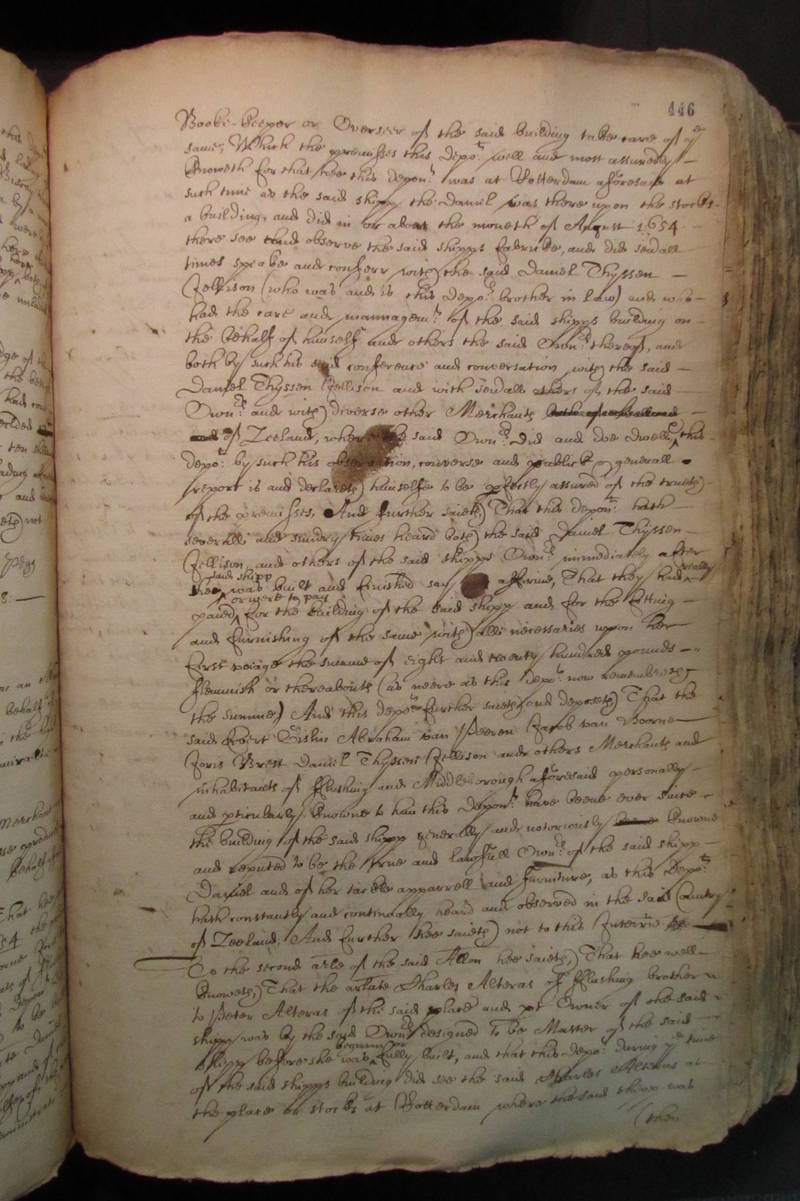 446
Booke-keeper or Overseer of the said building to take care of ye
same, Which the premisses this depot. well and most assuredly
knoweth for that hee this depont. was at Rotterdam aforesaid at
such time as the said shipp the Daniel was there upon the stocks
a building, and did in or about the moneth of August 1654
there see and observe the said shipps fabrike, and did sevdall
times speake and conferr with the said Daniel Thyssen
Jellison (who was and is this depots. brother in law) and who
had the care and mannagemt. of the said shipps building on
the behalf of himself and others the said Ownrs. thereof, and
both by such his said conference and conversation with the said
Daniel Thyssen Jellison and with sevdall others of the said
Ownrs. and with diverse other Merchants
of Zeeland, where the said Ownrs. did and doe dwell, this
depot. by such his observation, converse and publick & generall
report is and declareth himselfe to be perfectly assured of the trueth
of the premisses, And further saieth That this depont. hath
severall and sundry times heard both the said Daniel Thyssen
Jellison and others of the said shipps Ownrs. immediately after
said shipp
was built and finished say affirme, That they had really
or were to pay
payed for the building of the said shipp and for the fitting
and furnishing of the same with all necessaries upon her
first voiage the summe of eight and twenty hundred pounds
Flemmish or thereabouts (as neere as this depot. now remembreth
the summe) And this depot. further saieth and deposeth That the
said Evert Gislin Abraham van Peeren Jacob van Hoorne
Joris Brest Daniel Thyssen Jellison and others Merchants and
inhabitants of Flushing and Middleborough aforesaid personally
and pticularly knowne to him this depont. have beene ever since
the building of the said shipp generally and notoriously knowne
and reputed to be the true and lawfull Ownrs. of the said shipp
Daniel and of her tackle apparrell and furniture, as this depot.
hath constantly and continually heard and observed in the said Countrey
of Zeeland. And further hee saieth not to this Interrie
To the second arle of the said Allon hee saieth, That hee well
knoweth, That the arlate Charles Alteras of Flushing brother
to Peter Alteras of the said place and pt Owner of the said
shipp was by the said Ownrs. designed to be Master of the said
shipp before she was fully built, and that this depot. during ye time
of the said shipps building did see the said Charles Alteras at
the place or stocks at Rotterdam where the said shipp was
(then